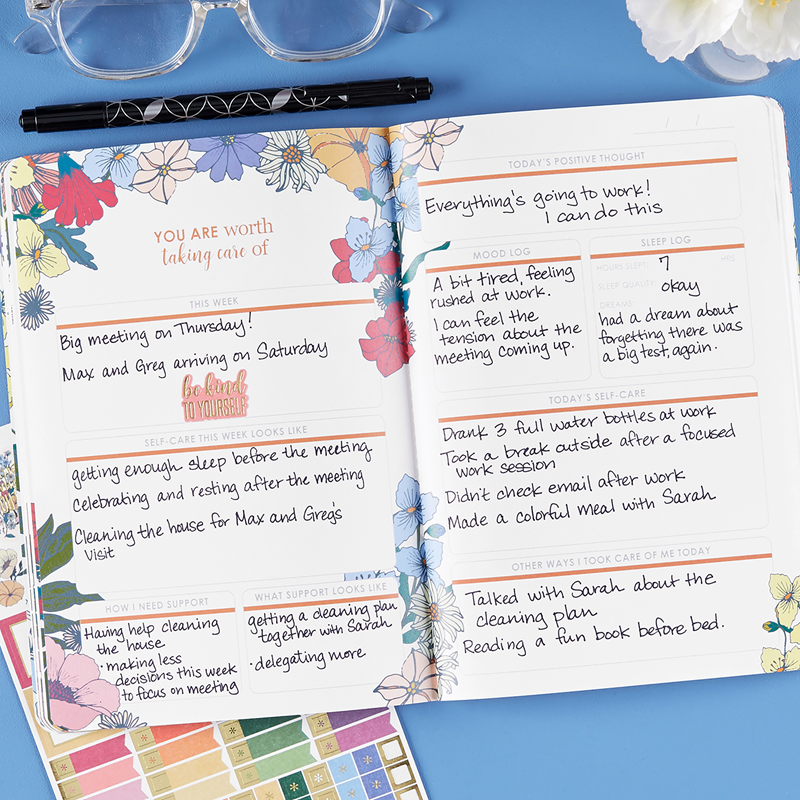 YOU ARE worth
taking care of
THIS WEEK
Big meeting on Thursday!
Max and Greg arriving on Saturday
be kind
TO YOURSELF
SELF-CARE THIS WEEK LOOKS LIKE
getting enough sleep before the meeting
Celebrating and resting after the meeting
Cleaning the house for Max and Greg's
Visit
HOW I NEED SUPPORT
Having help cleaning
the house
• making less
decisions this week
to focus on meeting
WHAT SUPPORT LOOKS LIKE
getting a cleaning plan
together with Sarah
• delegating more
/ /
TODAY'S POSITIVE THOUGHT
Everything's going to work!
I can do this
MOOD LOG
A bit tired, feeling
rushed at work.
I can feel the
tension about the
meeting coming up.
SLEEP LOG
HOURS SLEPT: 7 HRS
SLEEP QUALITY: okay
DREAMS:
had a dream about
forgetting there was
a big test, again.
TODAY'S SELF-CARE
Drank 3 full water bottles at work
Took a break outside after a focused
work session
Didn't check email after work
Made a colorful meal with Sarah
OTHER WAYS I TOOK CARE OF ME TODAY
Talked with Sarah about the
cleaning plan
Reading a fun book before bed.